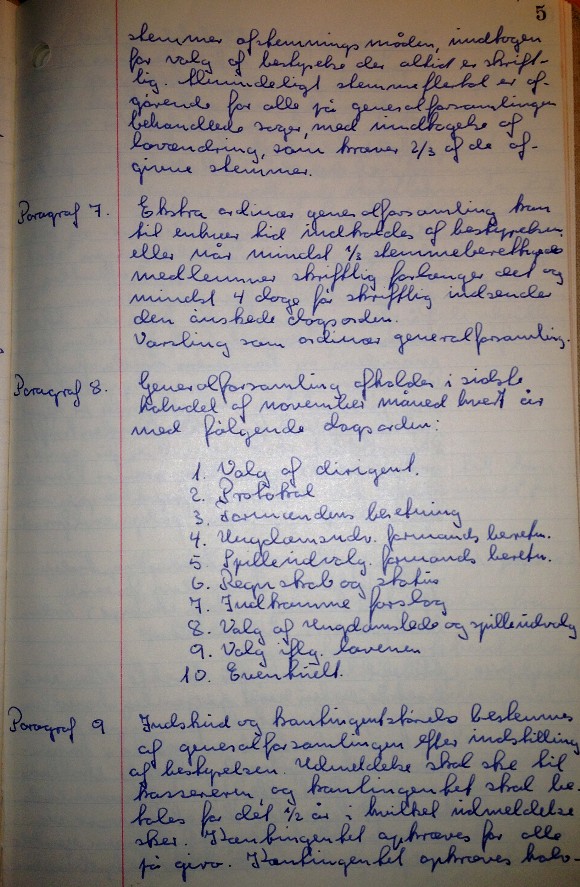 5
stemmer afstemningsmåden, undtagen
for valg af bestyrelse der altid er skrift-
lig. Almindeligt stemmeflertal er af-
gørende for alle på generalforsamlingen
behandlede sager, med undtagelse af
lovændring, som kræver 2/3 af de af-
givne stemmer.
Paragraf 7. Ekstra ordinær generalforsamling kan
til enhver tid indkaldes af bestyrelsen,
eller når mindst 1/3 stemmeberettigede
medlemmer skriftlig forlanger det og
mindst 4 dage før skriftlig indsender
den ønskede dagsorden.
Varsling som ordinær generalforsamling.
Paragraf 8. Generalforsamling afholdes i sidste
halvdel af november måned hvert år
med følgende dagsorden:
1. Valg af dirigent.
2. Protokol
3. Formandens beretning
4. Ungdomsudv. formands beretn.
5. Spilleudvalg. formands beretn.
6. Regnskab og status
7. Indkomne forslag
8. Valg af Ungdomslede og spilleudvalg
9. Valg iflg. lovenen
10. Eventuelt.
Paragraf 9 Indskud og kontingentstørrelse bestemmes
af generalforsamlingen efter indstilling
af bestyrelsen. Udmeldelse skal ske til
kassereren, og kontingentet skal be-
tales for det 1/2 år i hvilket udmeldelse
sker. Kontingentet opkræves for alle
på giro. Kontingentet opkræves halv-